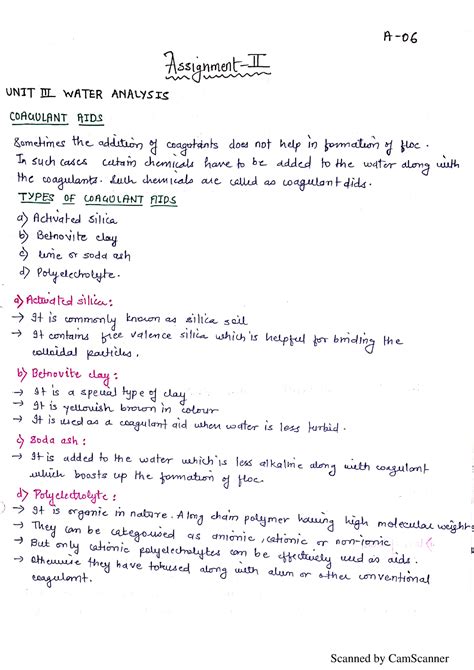 A-06
Assignment-II
UNIT III WATER ANALYSIS
COAGULANT AIDS
Sometimes the addition of coagutants does not help in formation of floc.
In such cases certain chemicals have to be added to the water along with
the coagulants. Such chemicals are called as coagulant dids.
TYPES OF COAGULANT AIDS
a) Activated silica
b) Betnovite clay
c) lime or soda ash
d) Polyelectrolyte.
a) Activated silica:
→ It is commonly known as silica soil
→ It contains free valence silica which is helpful for briding the
colloidal particles.
b) Betnovite clay:
→ It is a special type of clay
→ It is yellowish brown in colour
→ It is used as a coagulant aid when water is less turbid.
c) Soda ash:
→ It is added to the water which is less alkaline along with coagulant
which boosts up the formation of floc.
d) Polyelectrolyte:
→ It is organic in nature. A long chain polymer having high molecular weight
→ They can be categorised as anionic, cationic or non-ionic
→ But only cationic polyelectrolytes can be effectively used as aids.
→ Otherwise they have to be used along with alum or other conventional
coagulant.
Scanned by CamScanner